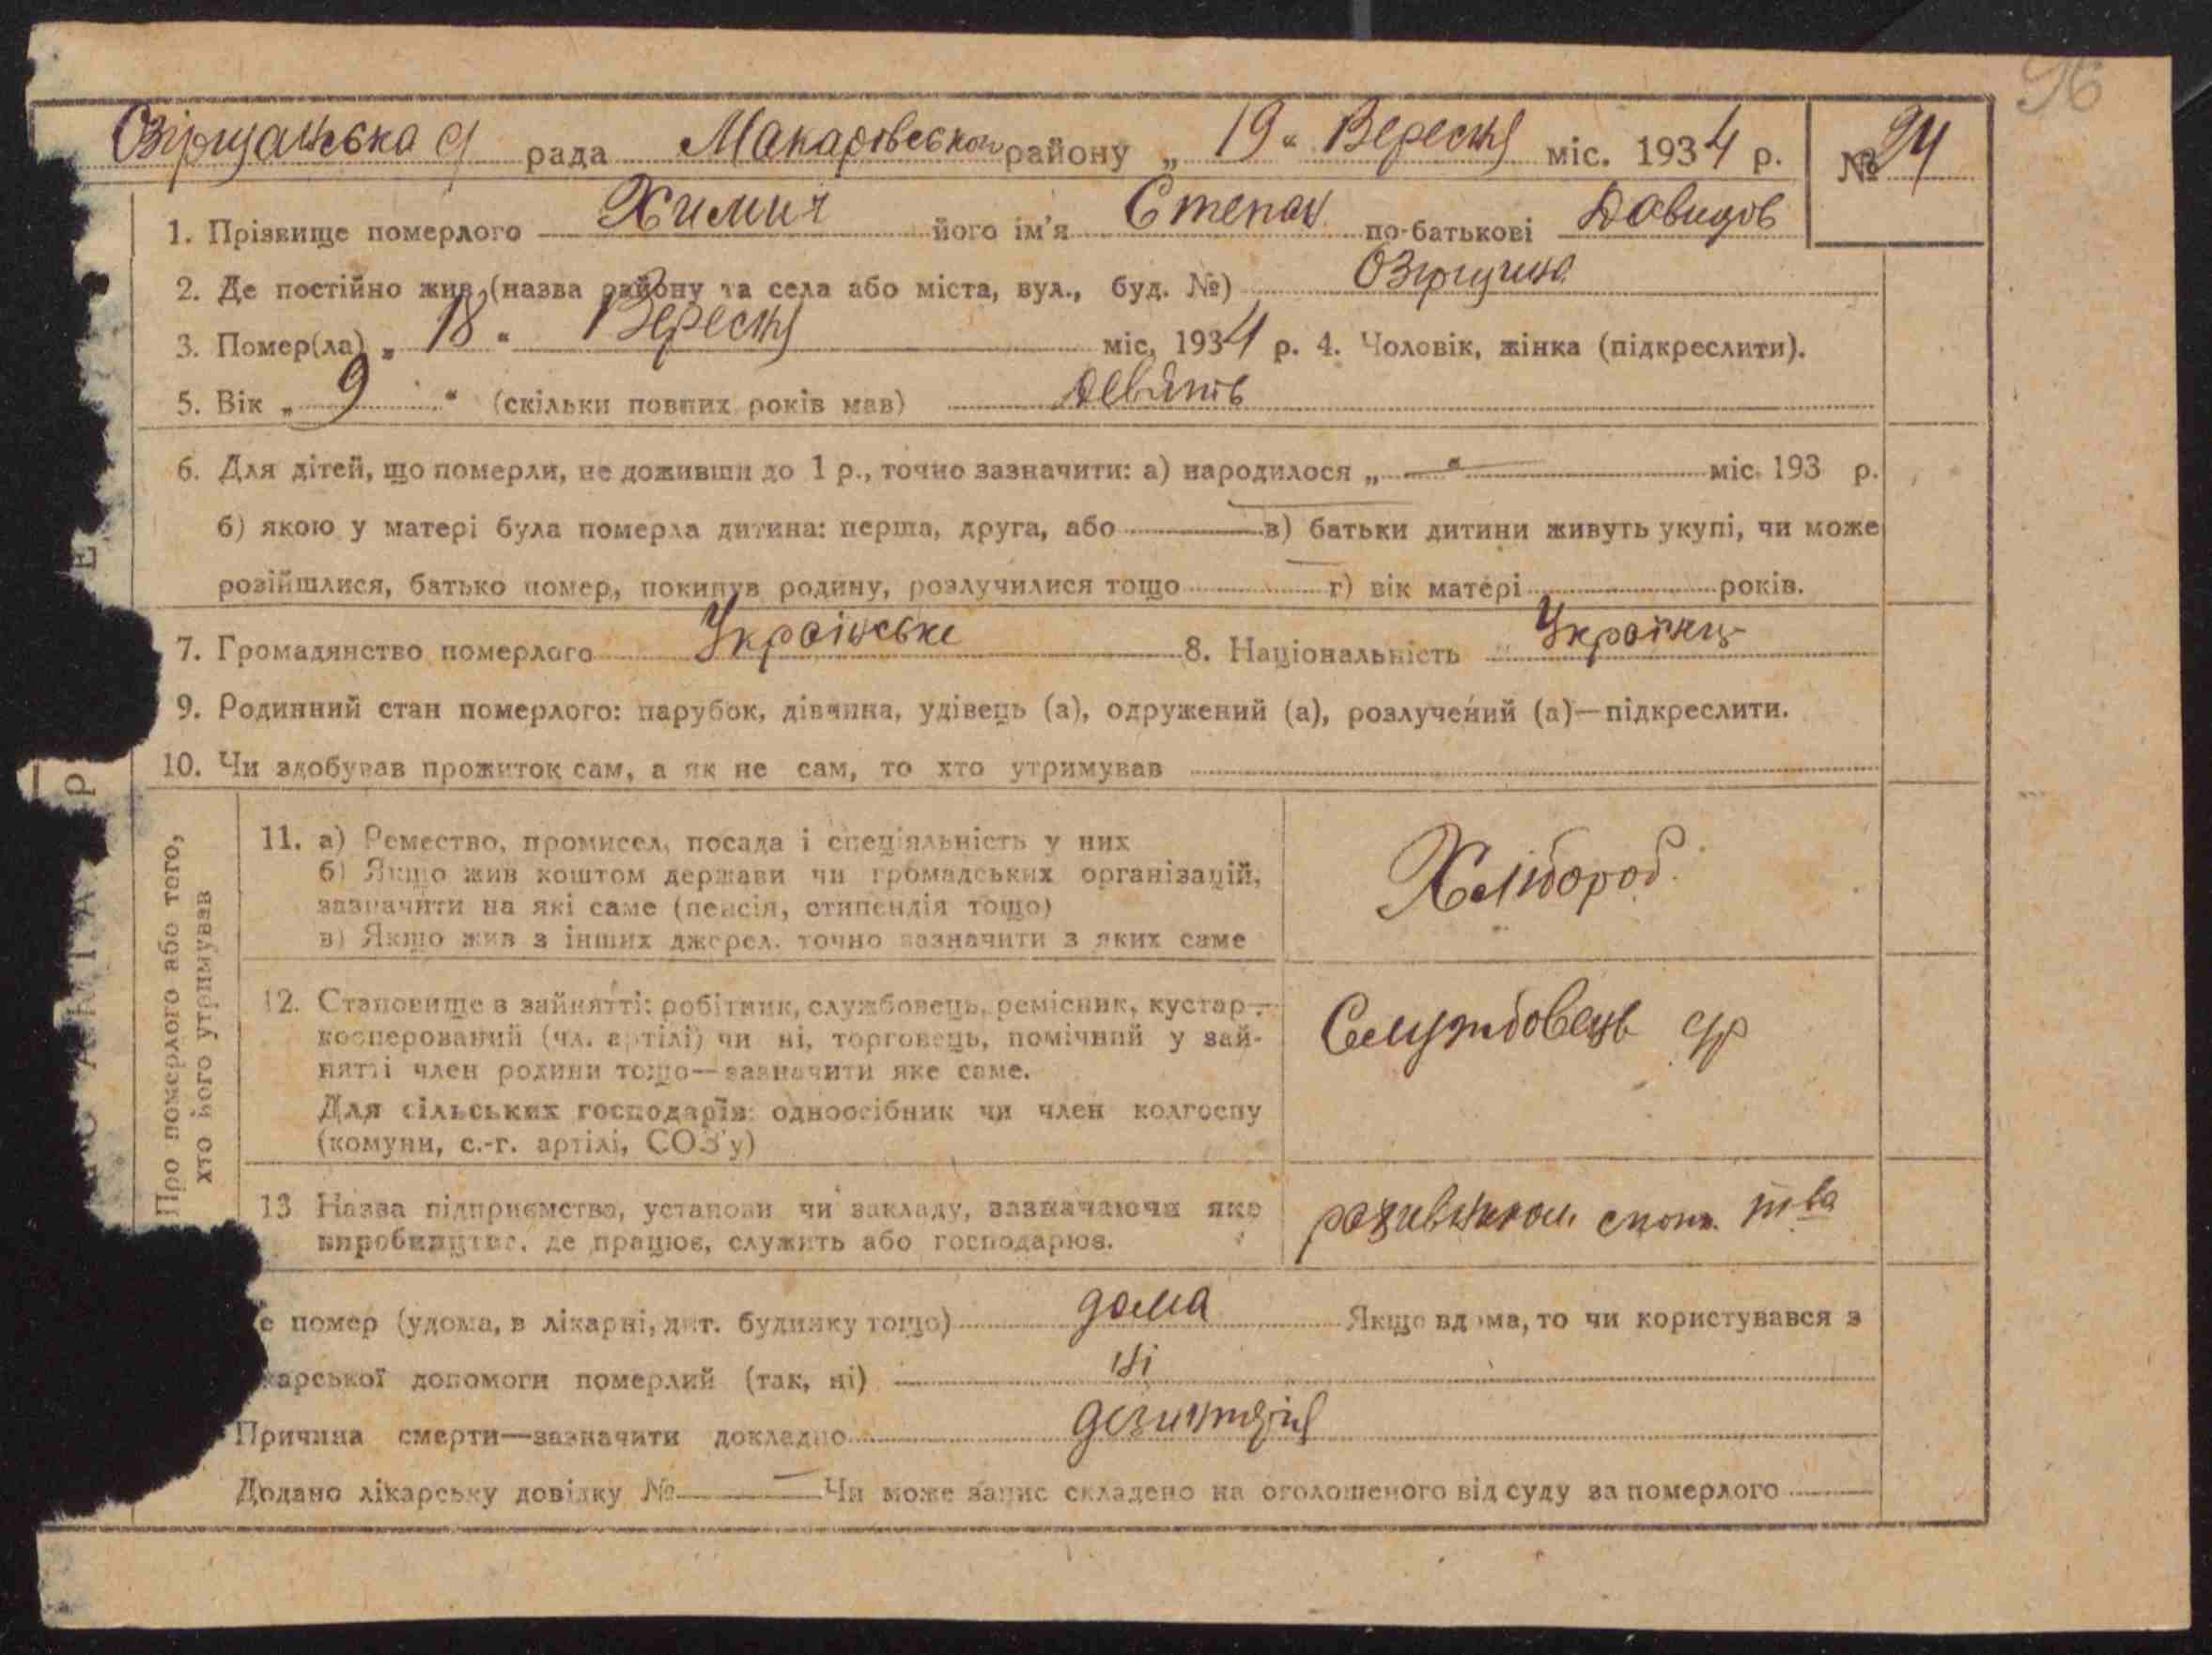 96
Озірщанська с рада Макарівського району „ 19 “ Вересня міс. 1934 р. № 24
1. Прізвище померлого Химич його ім'я Степан по-батькові Давидов
2. Де постійно жив (назва району та села або міста, вул., буд. №) Озірщина
3. Помер(ла) „ 18 “ Вересня міс. 1934 р. 4. Чоловік, жінка (підкреслити).
5. Вік „ 9 “ (скільки повних років мав) девять
6. Для дітей, що померли, не доживши до 1 р., точно зазначити: а) народилося „ “ міс. 193 р.
б) якою у матері була померла дитина: перша, друга, або в) батьки дитини живуть укупі, чи може
розійшлися, батько помер, покинув родину, розлучилися тощо г) вік матері років.
7. Громадянство померлого Українське 8. Національність Українец
9. Родинний стан померлого: парубок, дівчина, удівець (а), одружений (а), розлучений (а)—підкреслити.
10. Чи здобував прожиток сам, а як не сам, то хто утримував
Про померлого або того,
хто його утримував
11. а) Ремество, промисел, посада і спеціяльність у них
б) Якщо жив коштом держави чи громадських організацій,
зазначити на які саме (пенсія, стипендія тощо)
в) Якщо жив з інших джерел, точно зазначити з яких саме
Хлібороб.
12. Становище в зайнятті: робітник, службовець, ремісник, кустар—
кооперований (чл. артілі) чи ні, торговець, помічний у зай-
нятті член родини тощо—зазначити яке саме.
Для сільських господарів: одноосібник чи член колгоспу
(комуни, с.-г. артілі, СОЗ'у)
Службовець
13 Назва підприємства, установи чи закладу, зазначаючи яке
виробництво, де працює, служить або господарює.
спож. т-ва
е помер (удома, в лікарні, дит. будинку тощо) дома Якщо вдома, то чи користувався з
карської допомоги померлий (так, ні) ні
Причина смерти—зазначити докладно дезинтерія
Додано лікарську довідку № Чи може запис складено на оголошеного від суду за померлого